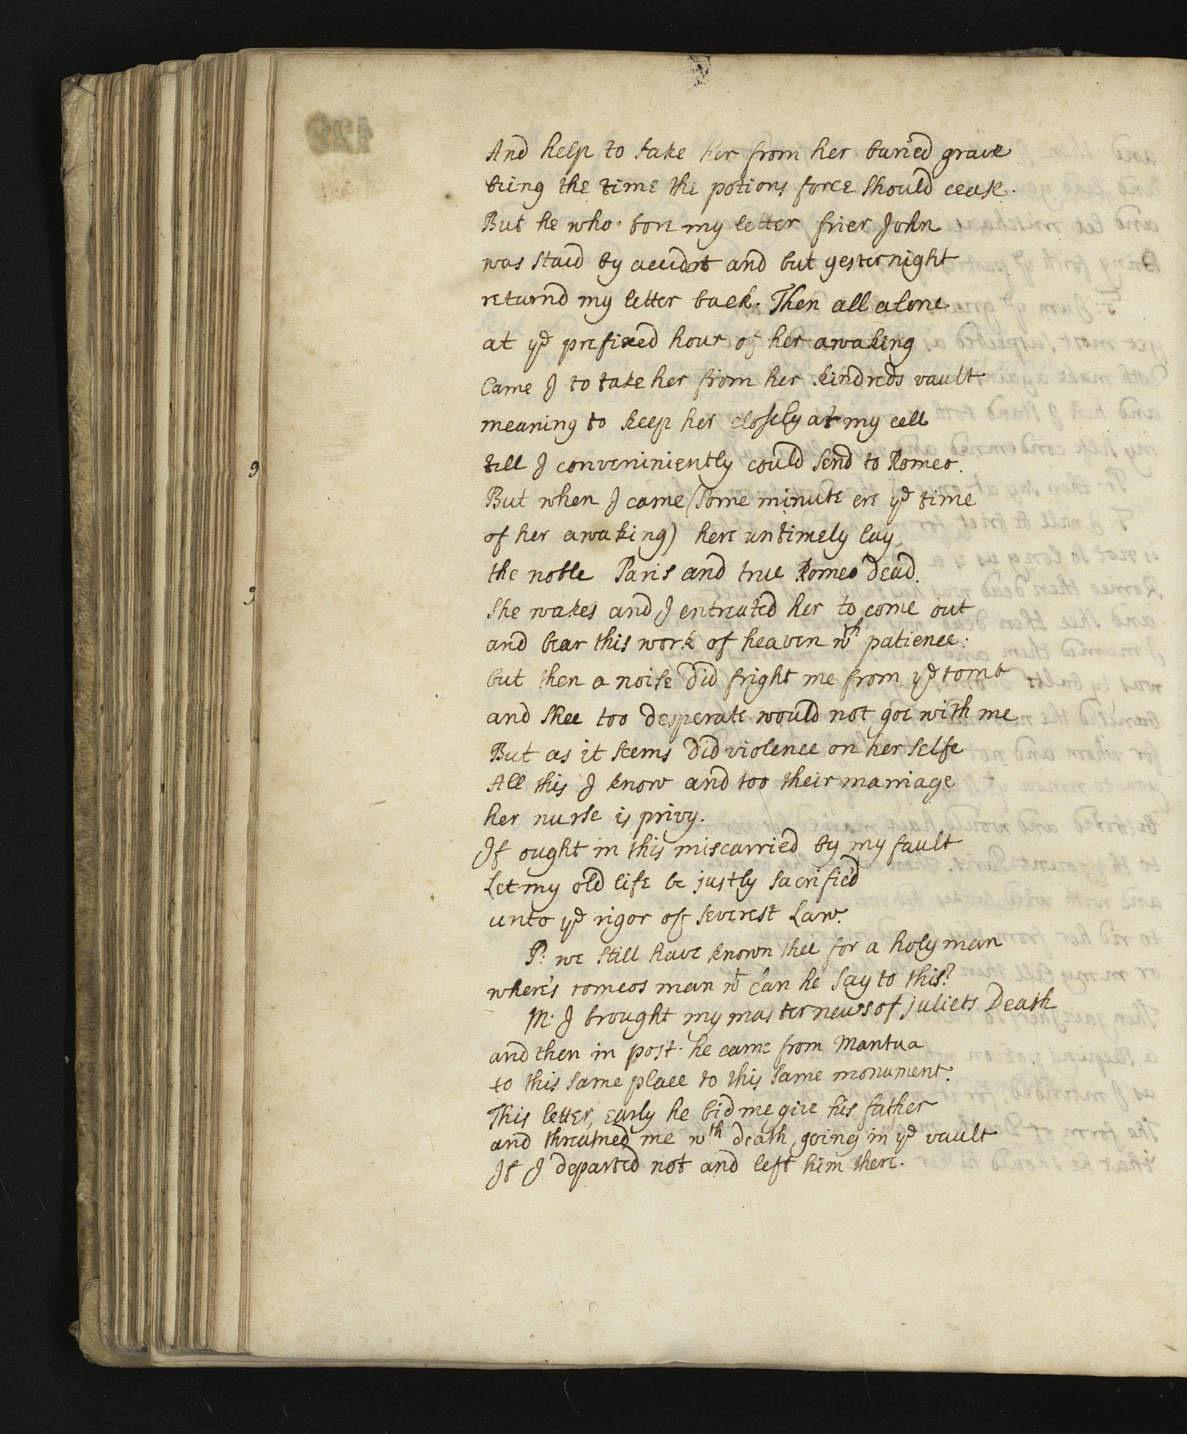 And help to take her from her buried grave
being the time the potions force should cease.
But he who bore my letter frier John
was staid by accident and but yesternight
returnd my letter back. Then all alone
at ye prefixed hour of her awaking
Came I to take her from her kindreds vault
meaning to keep her closely at my cell
till I conveniniently could send to Romeo.
But when I came (some minute ere ye time
of her awaking) here untimely lay
the noble Paris and true Romeo dead.
She wakes and I entreated her to come out
and bear this work of heaven wth patience:
but then a noise did fright me from ye tomb
and shee too desperate would not goe with me
But as it seems did violence on her selfe
All this I know and too their marriage
her nurse is privy.
If ought in this miscarried by my fault
Let my old life be justly sacrific'd
unto ye rigor of severest Law.
P: we still have known thee for a holy man
where's romeos man wt can he say to this?
M. I brought my master news of juliets Death
and then in post. he came from Mantua
to this same place to this same monument.
This letter, early he bid me give his father
and threatned me wth death, going in ye vault
If I departed not and left him there.